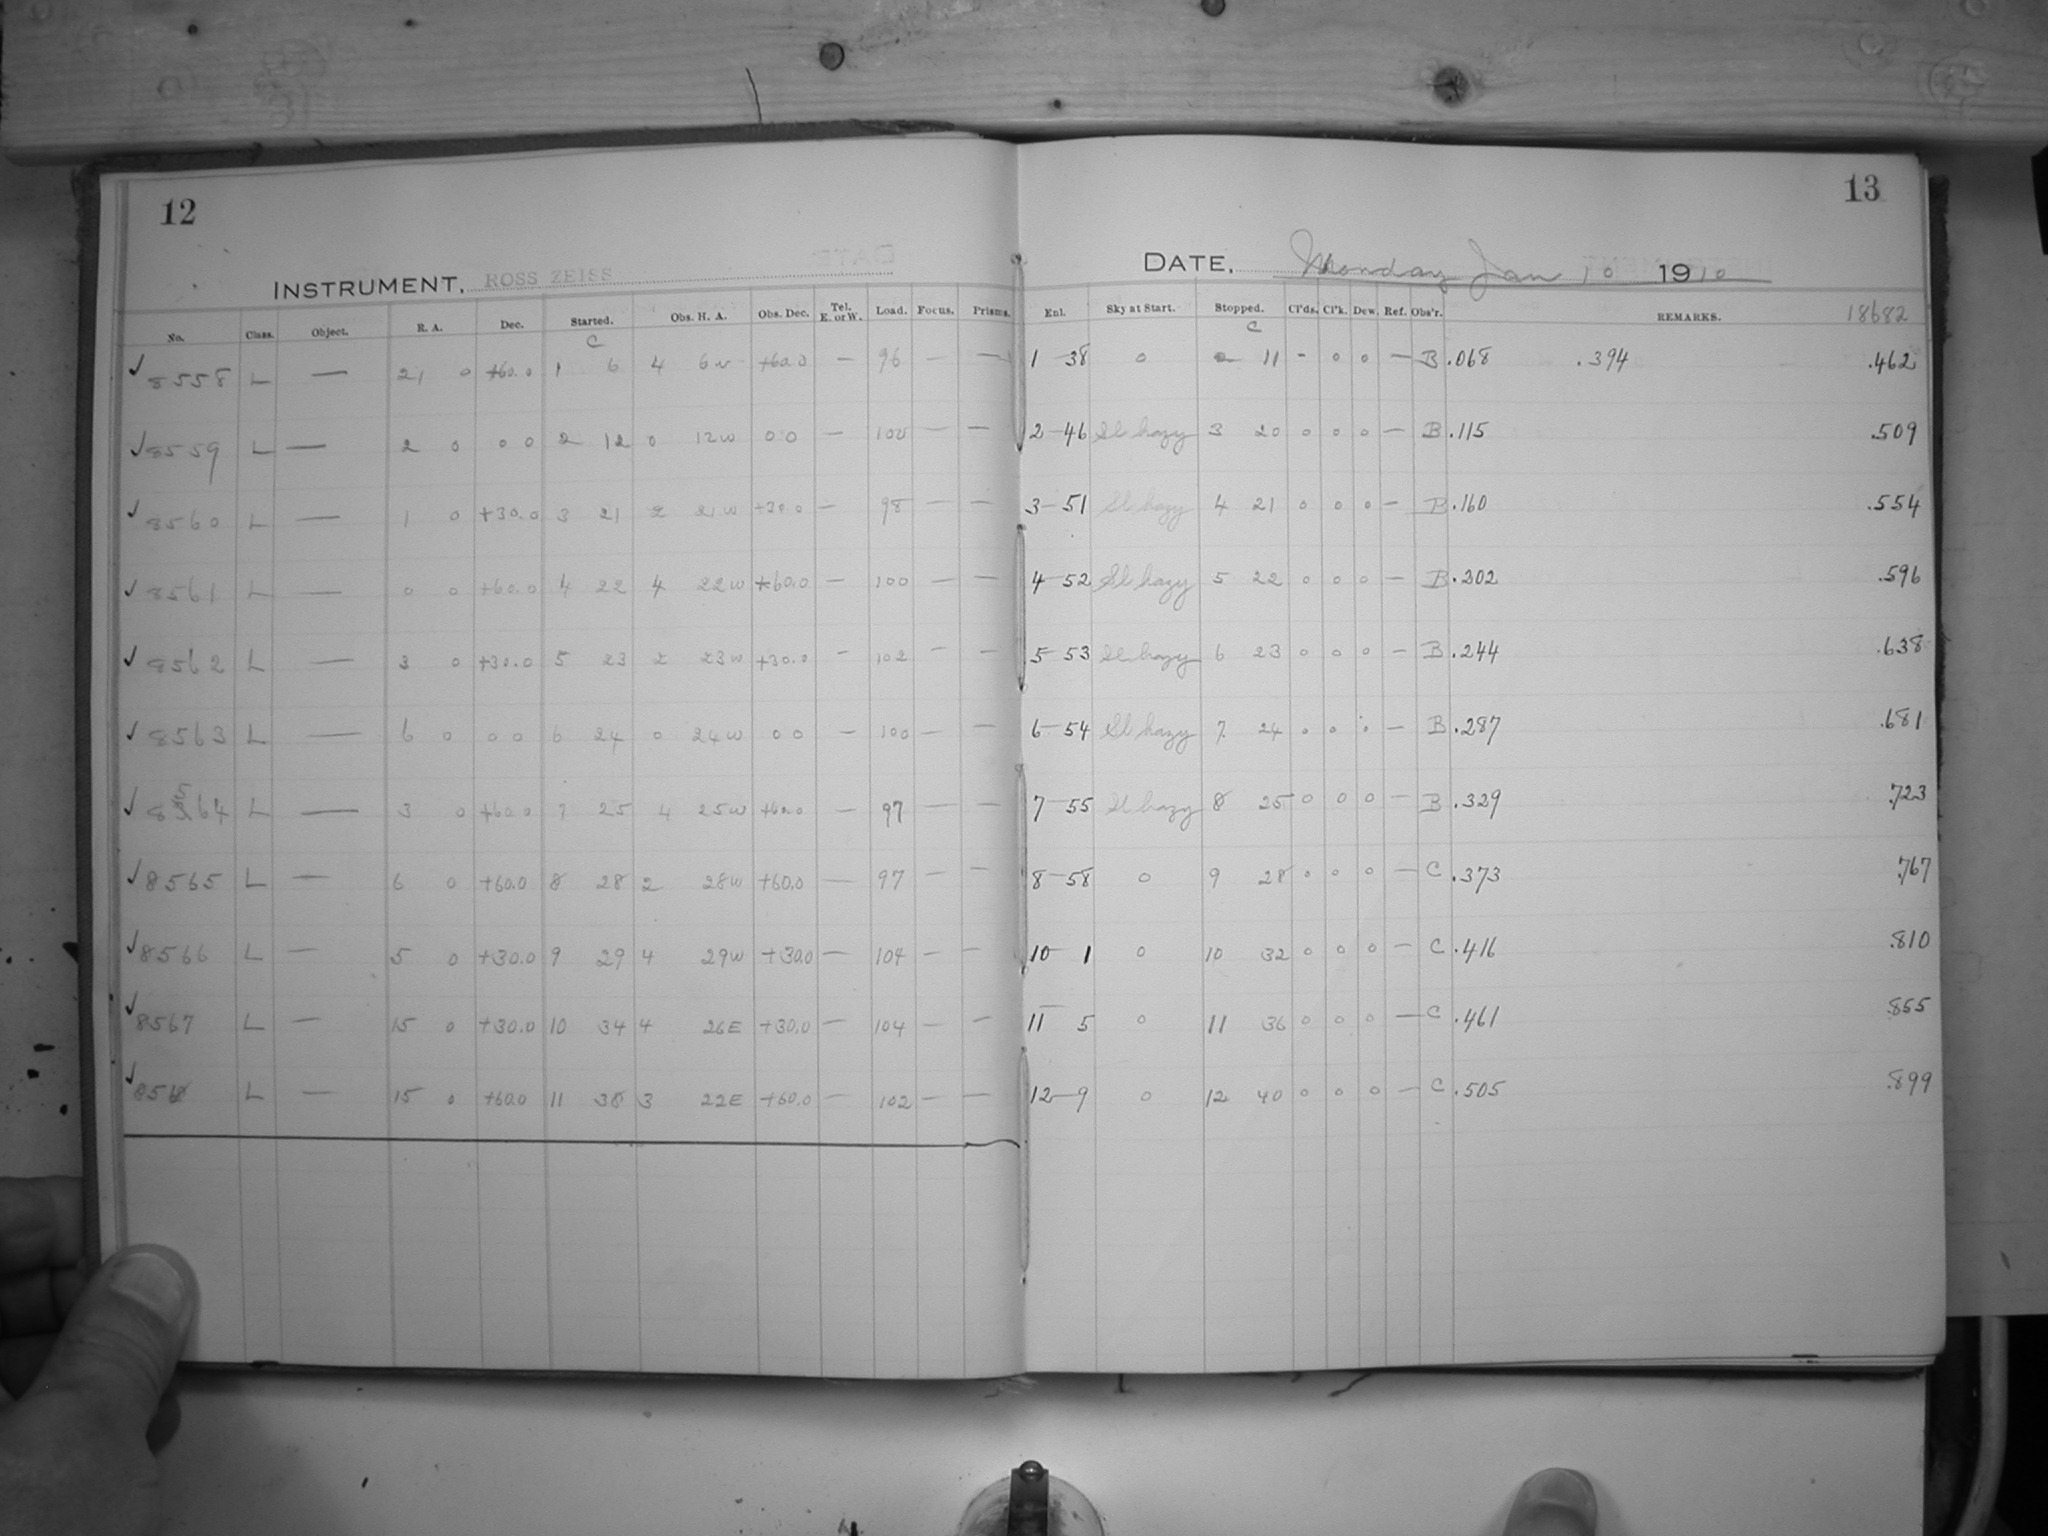 12
INSTRUMENT, ROSS ZEISS
No. Class. Object. R. A. Dec. Started. Obs. H. A. Obs. Dec. Tel. E. or W. Load. Focus. Prisms.
C
✓ 8558 L — 21 0 +60.0 1 6 4 6w +60.0 — 96 — —
✓ 8559 L — 2 0 0 0 2 12 0 12w 0 0 — — —
✓ 8560 L — 1 0 +30.0 3 21 2 21w +30.0 — 98 — —
✓ 8561 L — 0 0 +60.0 4 22 4 22w +60.0 — 100 — —
✓ 8562 L — 3 0 +30.0 5 23 2 23w +30.0 — 102 — —
✓ 8563 L — 6 0 0 0 6 24 0 24w 0 0 — 100 — —
✓ 8564 L — 3 0 +60.0 7 25 4 25w +60.0 — 97 — —
✓ 8565 L — 6 0 +60.0 8 28 2 28w +60.0 — 97 — —
✓ 8566 L — 5 0 +30.0 9 29 4 29w +30.0 — 104 — —
✓ 8567 L — 15 0 +30.0 10 34 4 26E +30.0 — 104 — —
✓ L — 15 0 +60.0 11 38 3 22E +60.0 — 102 — —
13
DATE, Monday Jan 10 1910
Enl. Sky at Start. Stopped. Cl'ds. Cl'k. Dew. Ref. Obs'r. REMARKS. 18682
C
1—38 0 2 11 - 0 0 — B .068 .394 .462
2—46 Sl hazy 3 20 0 0 0 — B .115 .509
3—51 Sl hazy 4 21 0 0 0 — B .160 .554
4—52 Sl hazy 5 22 0 0 0 — B .202 .596
5—53 Sl hazy 6 23 0 0 0 — B .244 .638
6—54 Sl hazy 7 24 0 0 — B .287 .681
7—55 Sl hazy 8 25 0 0 0 — B .329 .723
8—58 0 9 28 0 0 0 — C .373 .767
10—1 0 10 32 0 0 0 — C .416 .810
11—5 0 11 36 0 0 0 — C .461 .855
12—9 0 12 40 0 0 0 — C .505 .899